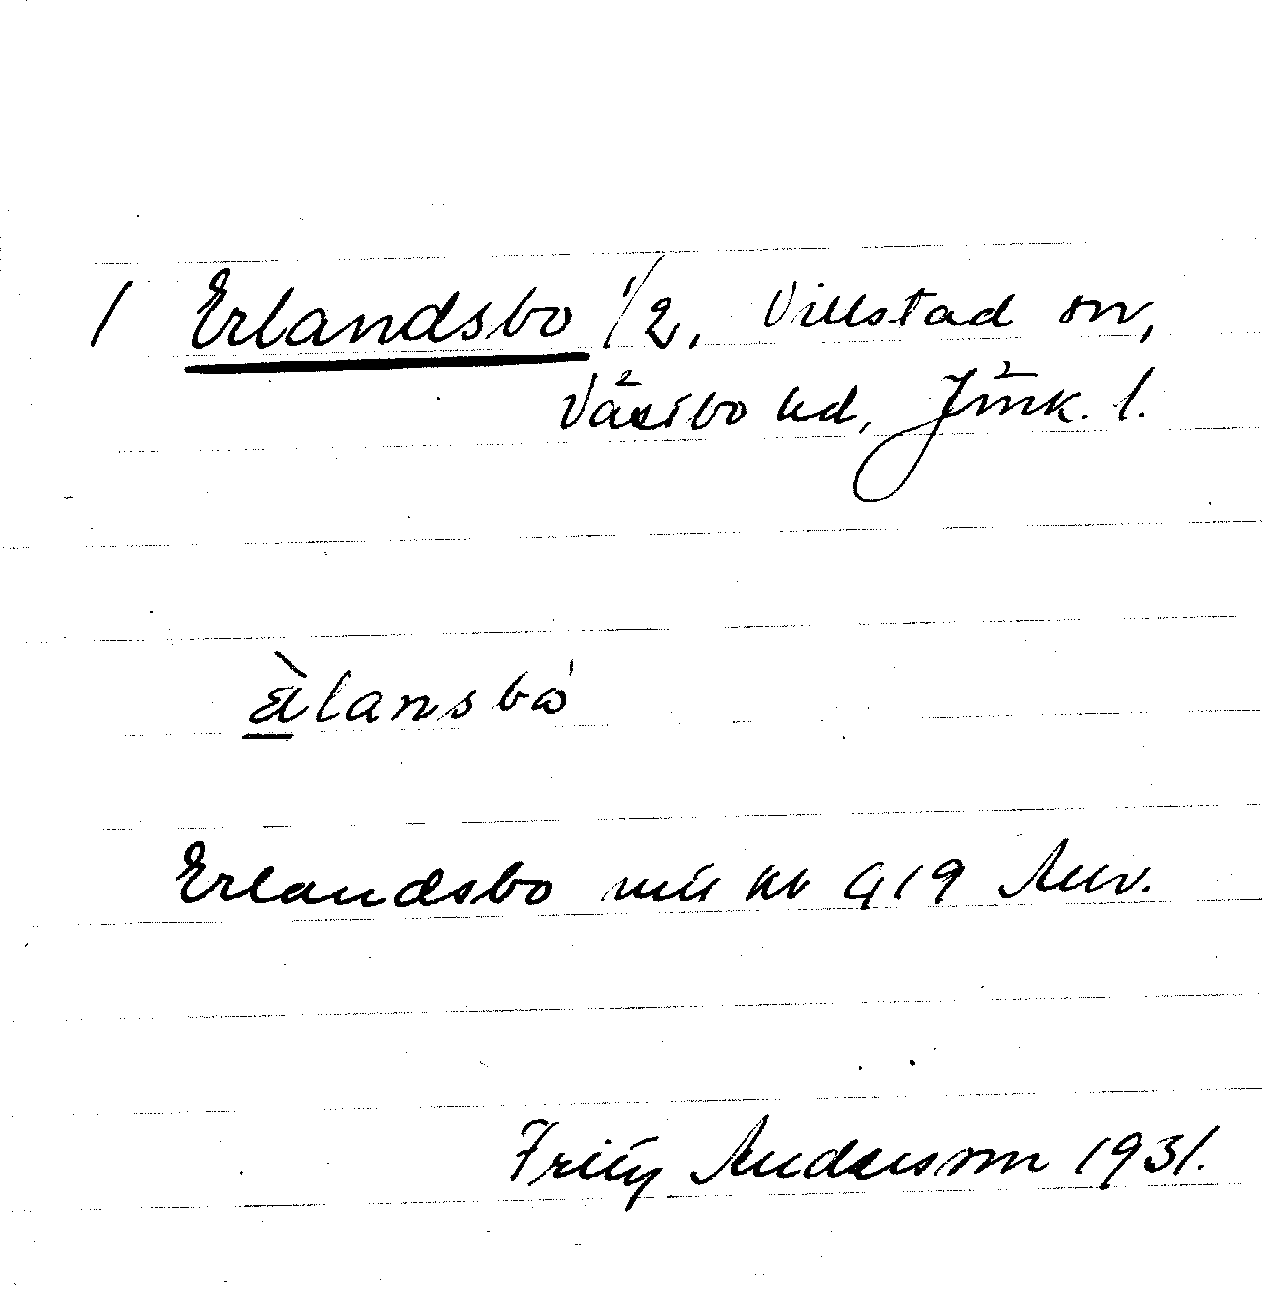 1 Erlandsbo 1/2, Villstad sn,
Västbo hd, Jönk. l.
Erlandsbo 419
Fritz Andersson 1931.